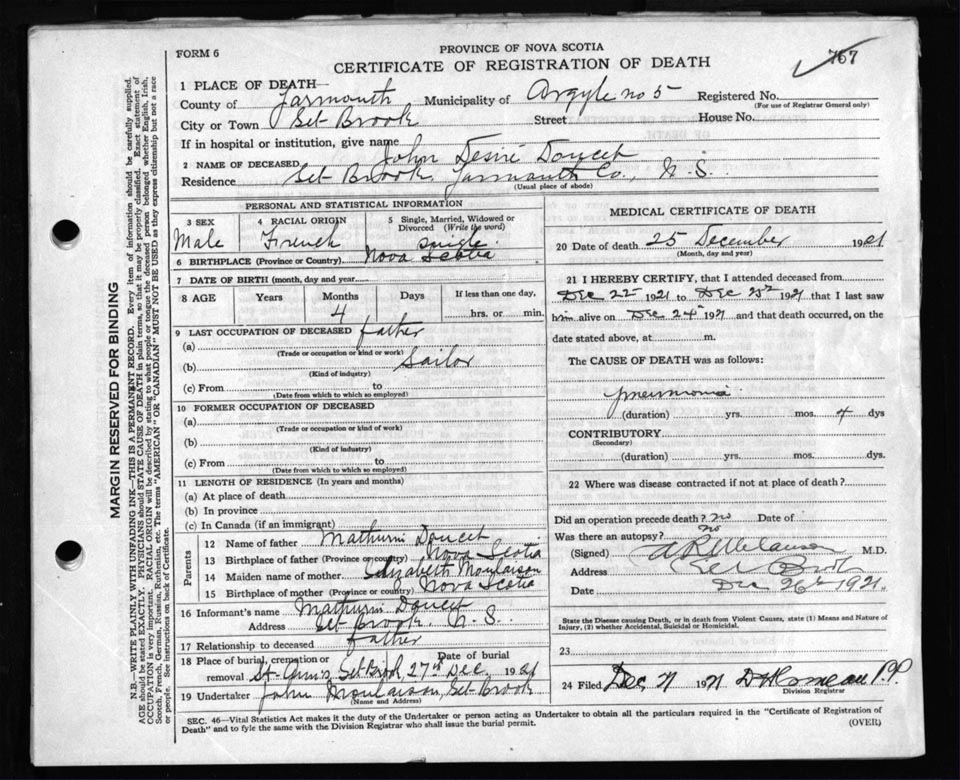 FORM 6
PROVINCE OF NOVA SCOTIA
CERTIFICATE OF REGISTRATION OF DEATH
767
1 PLACE OF DEATH—
County of Yarmouth Municipality of Argyle no 5 Registered No.
(For use of Registrar General only)
City or Town Sel Brook Street House No.
If in hospital or institution, give name
2 NAME OF DECEASED John Desiré Doucet
Residence Sel-Brook Yarmouth Co., N.S.
(Usual place of abode)
PERSONAL AND STATISTICAL INFORMATION
3 SEX Male
4 RACIAL ORIGIN French
5 Single, Married, Widowed or Divorced (Write the word) single
6 BIRTHPLACE (Province or Country) Nova Scotia
7 DATE OF BIRTH (month, day and year)
8 AGE Years Months 4 Days If less than one day, hrs. or min.
9 LAST OCCUPATION OF DECEASED father
(a)
(Trade or occupation or kind or work)
(b) Sailor
(Kind of industry)
(c) From to
(Date from which to which so employed)
10 FORMER OCCUPATION OF DECEASED
(a)
(Trade or occupation or kind of work)
(b)
(Kind of industry)
(c) From to
(Date from which to which so employed)
11 LENGTH OF RESIDENCE (In years and months)
(a) At place of death
(b) In province
(c) In Canada (if an immigrant)
Parents
12 Name of father Mathurin Doucet
13 Birthplace of father (Province or country) Nova Scotia
14 Maiden name of mother Elizabeth Moulaison
15 Birthplace of mother (Province or country) Nova Scotia
16 Informant's name Mathurin Doucet
Address Sel-Brook, N.S.
17 Relationship to deceased father
18 Place of burial, cremation or removal St-Ann's, Sel-Brook Date of burial 27th Dec. 1921
19 Undertaker John Moulaison, Sel-Brook
(Name and Address)
MEDICAL CERTIFICATE OF DEATH
20 Date of death 25 December 1921
(Month, day and year)
21 I HEREBY CERTIFY, that I attended deceased from
Dec 22nd 1921 to Dec 25th 1921 that I last saw
him alive on Dec 24th 1921 and that death occurred, on the
date stated above, at m.
The CAUSE OF DEATH was as follows:
pneumonia
(duration) yrs. mos. 4 dys
CONTRIBUTORY
(Secondary)
(duration) yrs. mos. dys.
22 Where was disease contracted if not at place of death?
Did an operation precede death? no Date of
Was there an autopsy? no
(Signed) M.D.
Address Sel Brook
Date Dec 26th 1921.
State the Disease causing Death, or in death from Violent Causes, state (1) Means and Nature of Injury, (2) whether Accidental, Suicidal or Homicidal.
23
24 Filed Dec 1921 P.P.
Division Registrar
SEC. 46—Vital Statistics Act makes it the duty of the Undertaker or person acting as Undertaker to obtain all the particulars required in the "Certificate of Registration of
Death" and to fyle the same with the Division Registrar who shall issue the burial permit. (OVER)
MARGIN RESERVED FOR BINDING
N.B.—WRITE PLAINLY WITH UNFADING INK—THIS IS A PERMANENT RECORD. Every item of information should be carefully supplied.
AGE should be stated EXACTLY. PHYSICIANS should STATE CAUSE OF DEATH in plain terms, so that it may be properly classified. Exact statement of
OCCUPATION is very important. RACIAL ORIGIN will be described by stating to what people or tongue the deceased person belonged whether English, Irish,
Scotch, French, German, Russian, Ruthenian, etc. The terms "AMERICAN" OR "CANADIAN" MUST NOT BE USED as they express citizenship but not a race
or people. See instructions on back of Certificate.